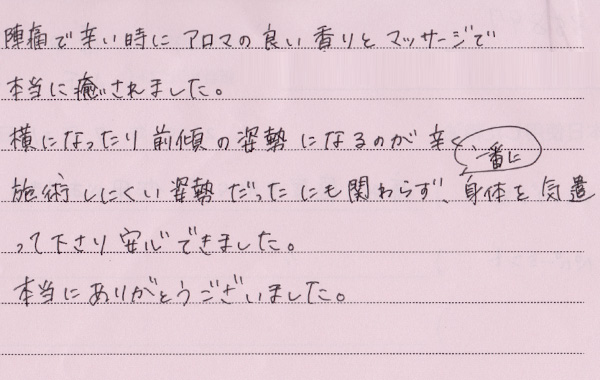 陣痛で辛い時にアロマの良い香りとマッサージで
本当に癒されました。
横になったり前傾の姿勢になるのが辛く
一番に
施術しにくい姿勢だったにも関わらず、身体を気遣
って下さり安心できました。
本当にありがとうございました。